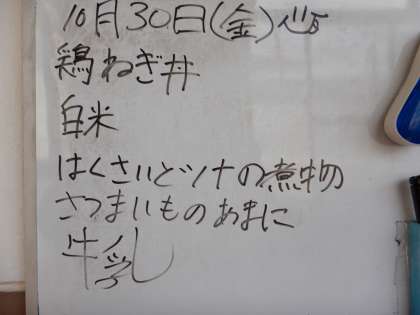 10月30日(金)
鶏ねぎ丼
白米
はくさいとツナの煮物
さつまいものあまに
牛乳